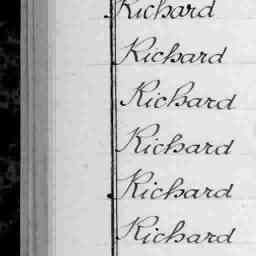 Richard
Richard
Richard
Richard
Richard
Richard